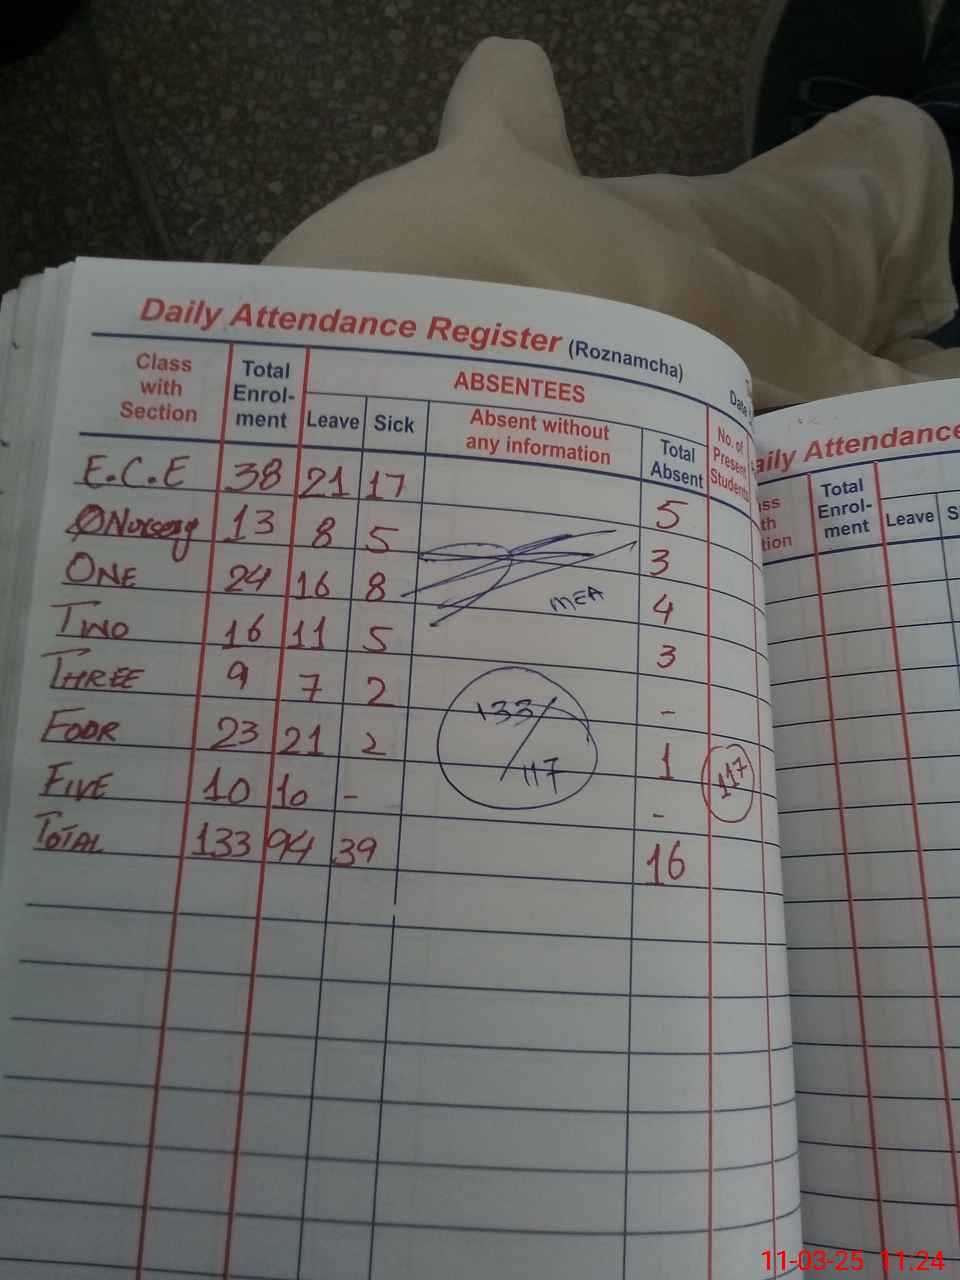 Daily Attendance Register (Roznamcha)
Date
Class with Section
Total Enrol-ment
ABSENTEES
Leave
Sick
Absent without any information
Total Absent
No. of Present Students
E.C.E 38 21 17 5
Nursery 13 8 5 3
ONE 24 16 8 4
MEA
TWO 16 11 5 3
THREE 9 7 2 -
133/117
FOOR 23 21 2 1
117
FIVE 10 10 - -
TOTAL 133 94 39 16
aily Attendance
ss
th
tion
Total Enrol-ment
Leave
S
11-03-25 11:24